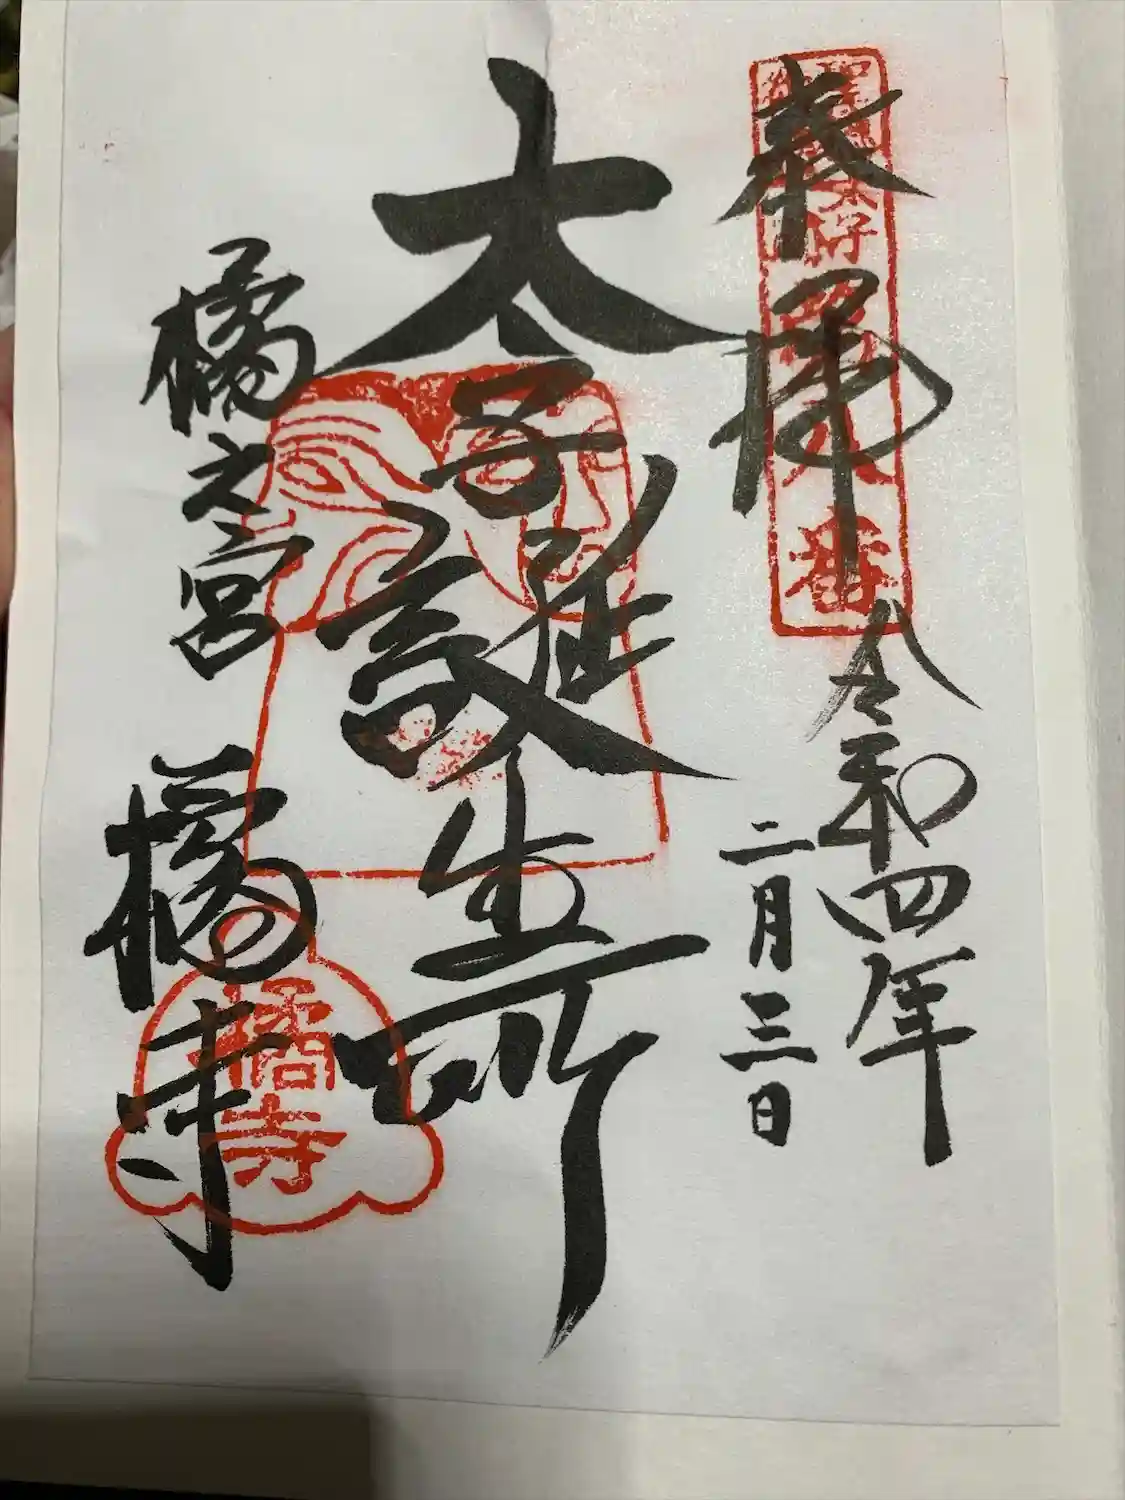 奉拝
令和四年
二月三日
太子誕生所
橘之宮
橘寺
橘寺